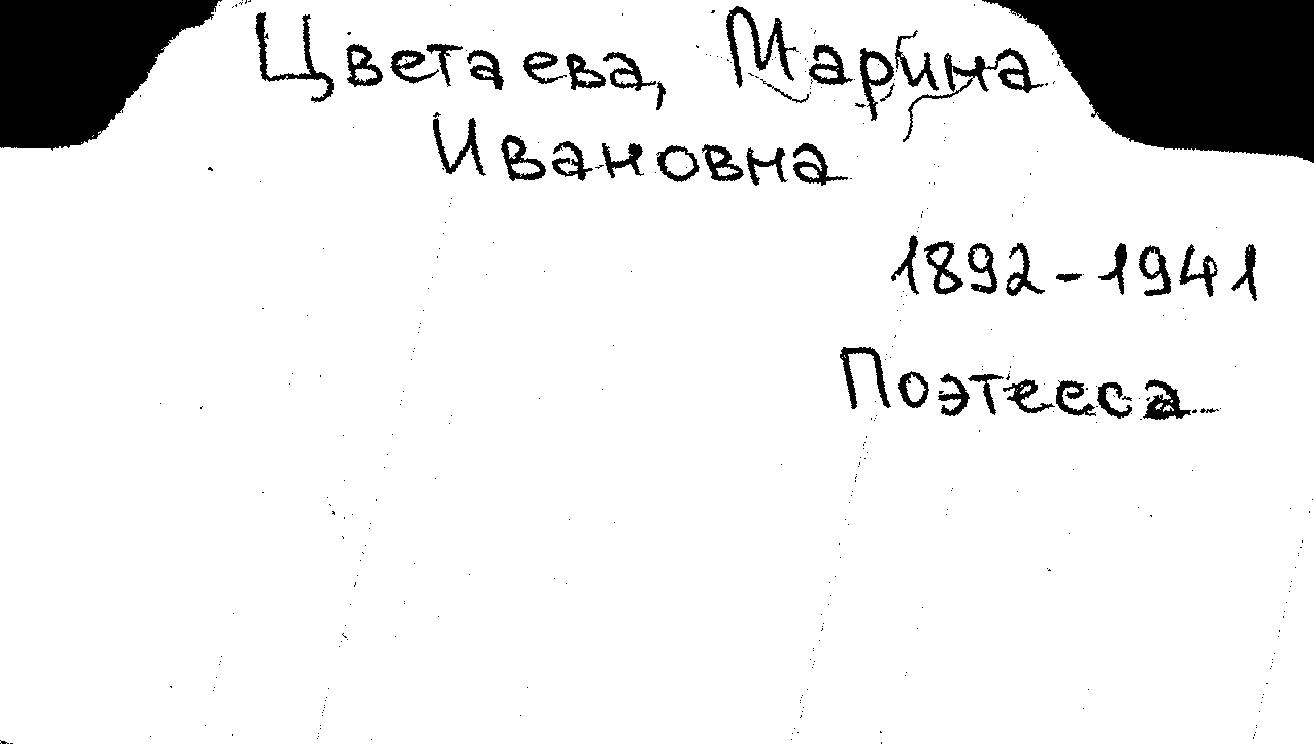 Цветаева, Марина
Ивановна
1892-1941
Поэтесса